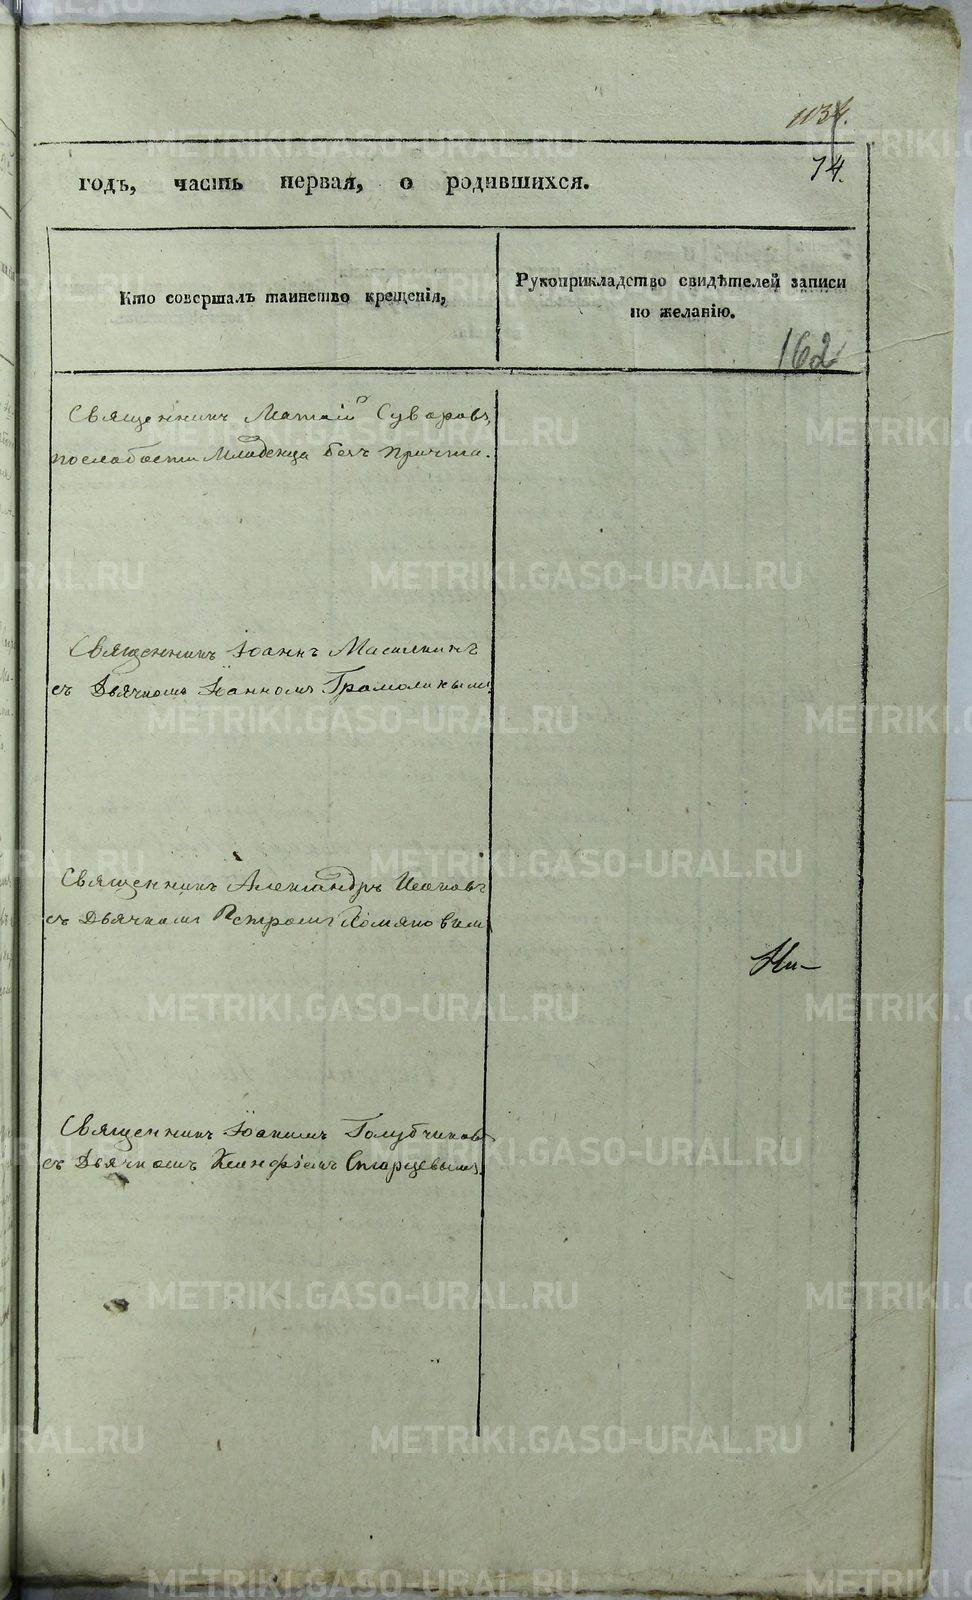 1034.
74.
годъ, часть первая, о родившихся.
Кто совершалъ таинство крещенія,
Рукоприкладство свидѣтелей записи
по желанію.
162
Священникъ Матѳій Суворовъ,
послабости Младенца безъ Причта.
Священникъ Іоаннъ
съ Дьячкомъ Іоанномъ Грамолинымъ
Священникъ Александръ Поповъ
съ Дьячкомъ Петромъ Хомяковымъ
Ни-
Священникъ Іоакимъ Голубчиковъ
съ Дьячкомъ Ксенофонтомъ Старцевымъ.
METRIKI.GASO-URAL.RU